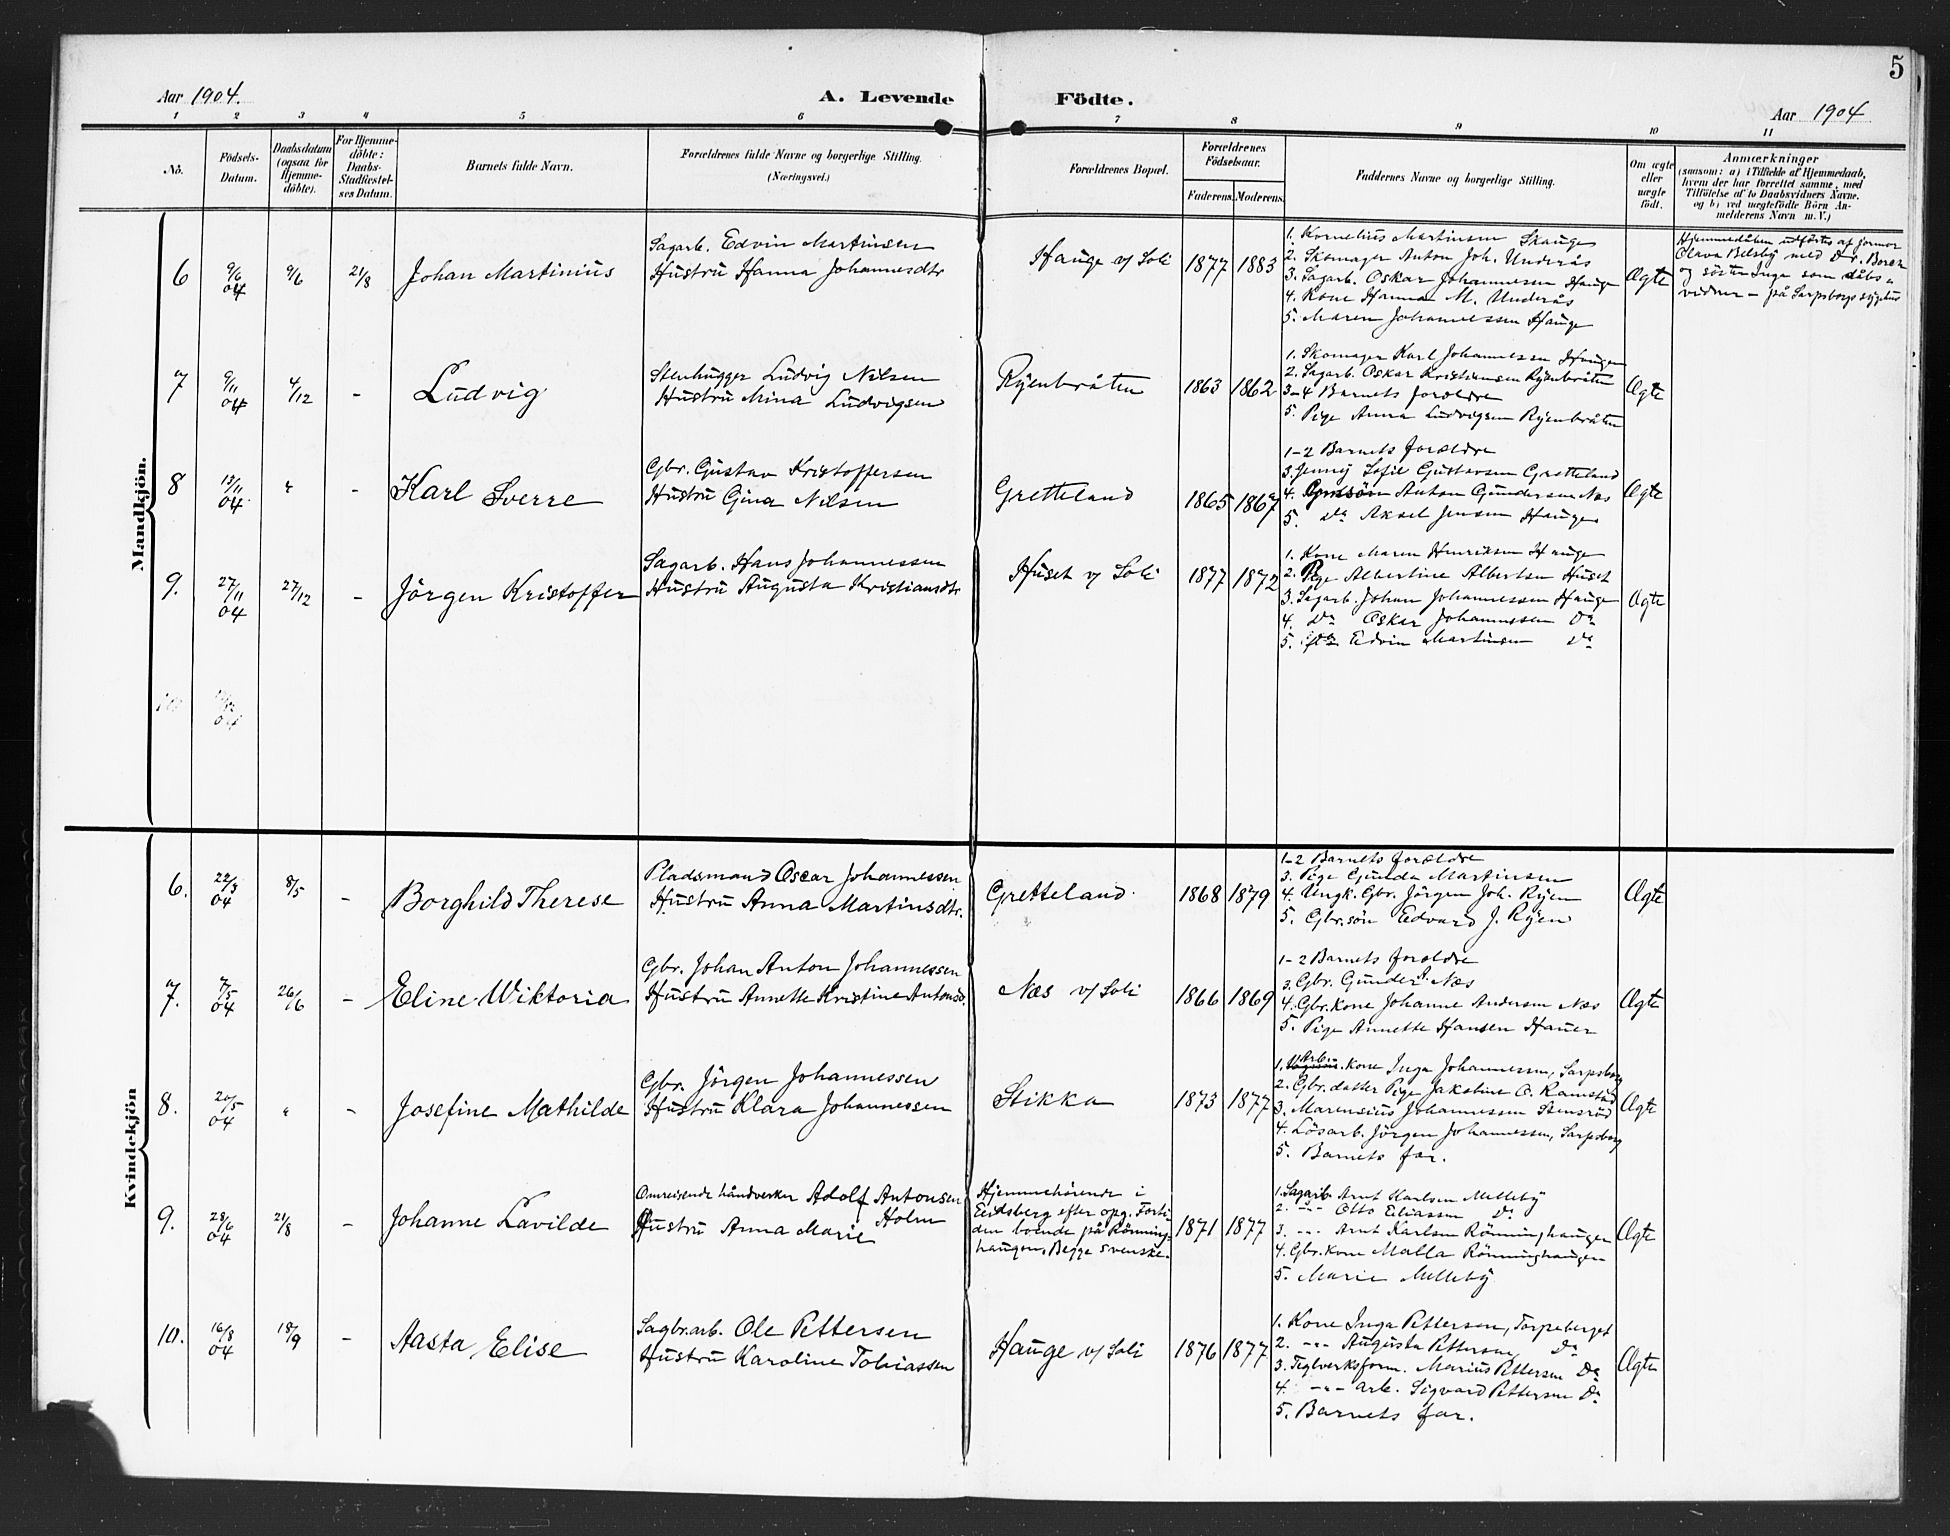 5
Aar 1904.
A. Levende Födte.
Aar 1904
1 2 3 4 5 6 7 8 9 10 11
No.
Födsels-Datum.
Daabsdatum (ogsaa for Hjemme-döbte).
For Hjemme-döbte: Daabs-Stadfæstel-ses Datum.
Barnets fulde Navn.
Forældrenes fulde Navne og borgerlige Stilling. (Næringsvei.)
Forældrenes Bopæl.
Forældrenes Födselsaar.
Faderens. Moderens.
Faddernes Navne og borgerlige Stilling.
Om ægte eller uægte födt.
Anmærkninger
(saasom: a) i Tilfælde af Hjemmedaab,
hvem der har forrettet samme, med
Tilföielse af to Daabsvidners Navne.
og b) ved uægtefödte Börn An-
melderens Navn m. V.)
Mandkjön.
6 9/6 04 9/6 21/8 Johan Martinius
Sagarb. Edvin Martinsen
Hustru Hanna Johannesdtr
Hauge v/ Soli 1877 1883
1. Kornelius Martinsen Skauge
2. Skomager Anton Joh. Underås
3. Sagarb. Oskar Johannessen Hauge
4. Kone Hanna M. Underås
5. Maren Johannessen Hauge
Ægte
Hjemmedåben udförtes af jormor
Olava Belsby med Dr. Borch
og sösten Inga som dåbs-
vidner – på Sarpsborgs sygehus
7 9/11 04 4/12 - Ludvig
Stenhugger Ludvig Nilsen
Hustru Mina Ludvigsen
Ryenbråten 1863 1862
1. Skomager Karl Johannessen Haugen
2. Sagarb. Oskar Kristiansen Ryenbråten
3-4 Barnets forældre
5. Pige Anna Ludvigsen Ryenbråten
Ægte
8 13/11 04 " - Karl Sverre
Gbr. Gustav Kristoffersen
Hustru Gina Nilsen
Gretteland 1865 1867
1-2 Barnets forældre
3. Jenny Sofie Gustavsen Gretteland
4. Anton Gundersen Næs
5. Do Aksel Jensen Hauge
Ægte
9. 27/11 04 27/12 - Jörgen Kristoffer
Sagarb. Hans Johannessen
Hustru Augusta Kristiansdtr
Huset v/ Soli 1877 1872
1. Kone Maren Henriksen Hauge
2. Pige Albertine Albertsen Huset
3. Sagarb. Johan Johannessen Hauge
4. Do Oskar Johannessen Do
5. Do Edvin Martinsen Do
Ægte
Kvindekjön
6. 22/3 04 8/5 - Borghild Therese
Pladsmand Oscar Johannessen
Hustru Anna Martinsdtr.
Gretteland 1868 1879
1-2 Barnets forældre
3. Pige Gunda Martinsen
4. Ungk. Gbr. Jörgen Joh. Ryen
5. Gbr.sön Edvard J. Ryen
Ægte
7. 7/5 04 26/6 - Eline Wiktoria
Gbr. Johan Anton Johannessen
Hustru Annette Kristine Antonsd.
Næs v/ Soli 1866 1869
1-2 Barnets forældre
3. Gbr. Gunder A. Næs
4. Gbr.kone Johanne Andersen Næs
5. Pige Annette Hansen Hauer
Ægte
8. 20/5 04 " - Josefine Mathilde
Gbr. Jörgen Johannessen
Hustru Klara Johannessen
Stikka 1873 1877
1. Arb.- kone Inga Johannessen, Sarpsborg
2. Gbr.datter Pige Jakobine O. Ramstad
3. Marensius Johannessen Stensröd
4. Lösarb. Jörgen Johannessen, Sarpsborg
5. Barnets far.
Ægte
9. 28/6 04 21/8 - Johanne Lavilde
Omreisende håndverker Adolf Antonsen
Holm
Hustru Anna Marie
Hjemmehörende i
Eidsberg efter opg. Forti-
den boende på Rönning-
haugen. Begge svenske.
1871 1877
1. Sagarb. Arnt Karlsen Melleby
2. -"- Otto Eliassen Do
3. -"- Arnt Karlsen Rönninghaugen
4. Gbr.kone Malla Rönninghaugen
5. Marie Melleby
Ægte
10. 16/8 04 18/9 - Aasta Elise
Sagbr.arb. Ole Pettersen
Hustru Karoline Tobiassen
Hauge v/ Soli 1876 1877
1. Kone Inga Pettersen, Torpeberget
2. -"- Augusta Pettersen Do
3. Teglverksform. Marius Pettersen Do
4. -"- arb. Sigvard Pettersen Do
5. Barnets far.
Ægte